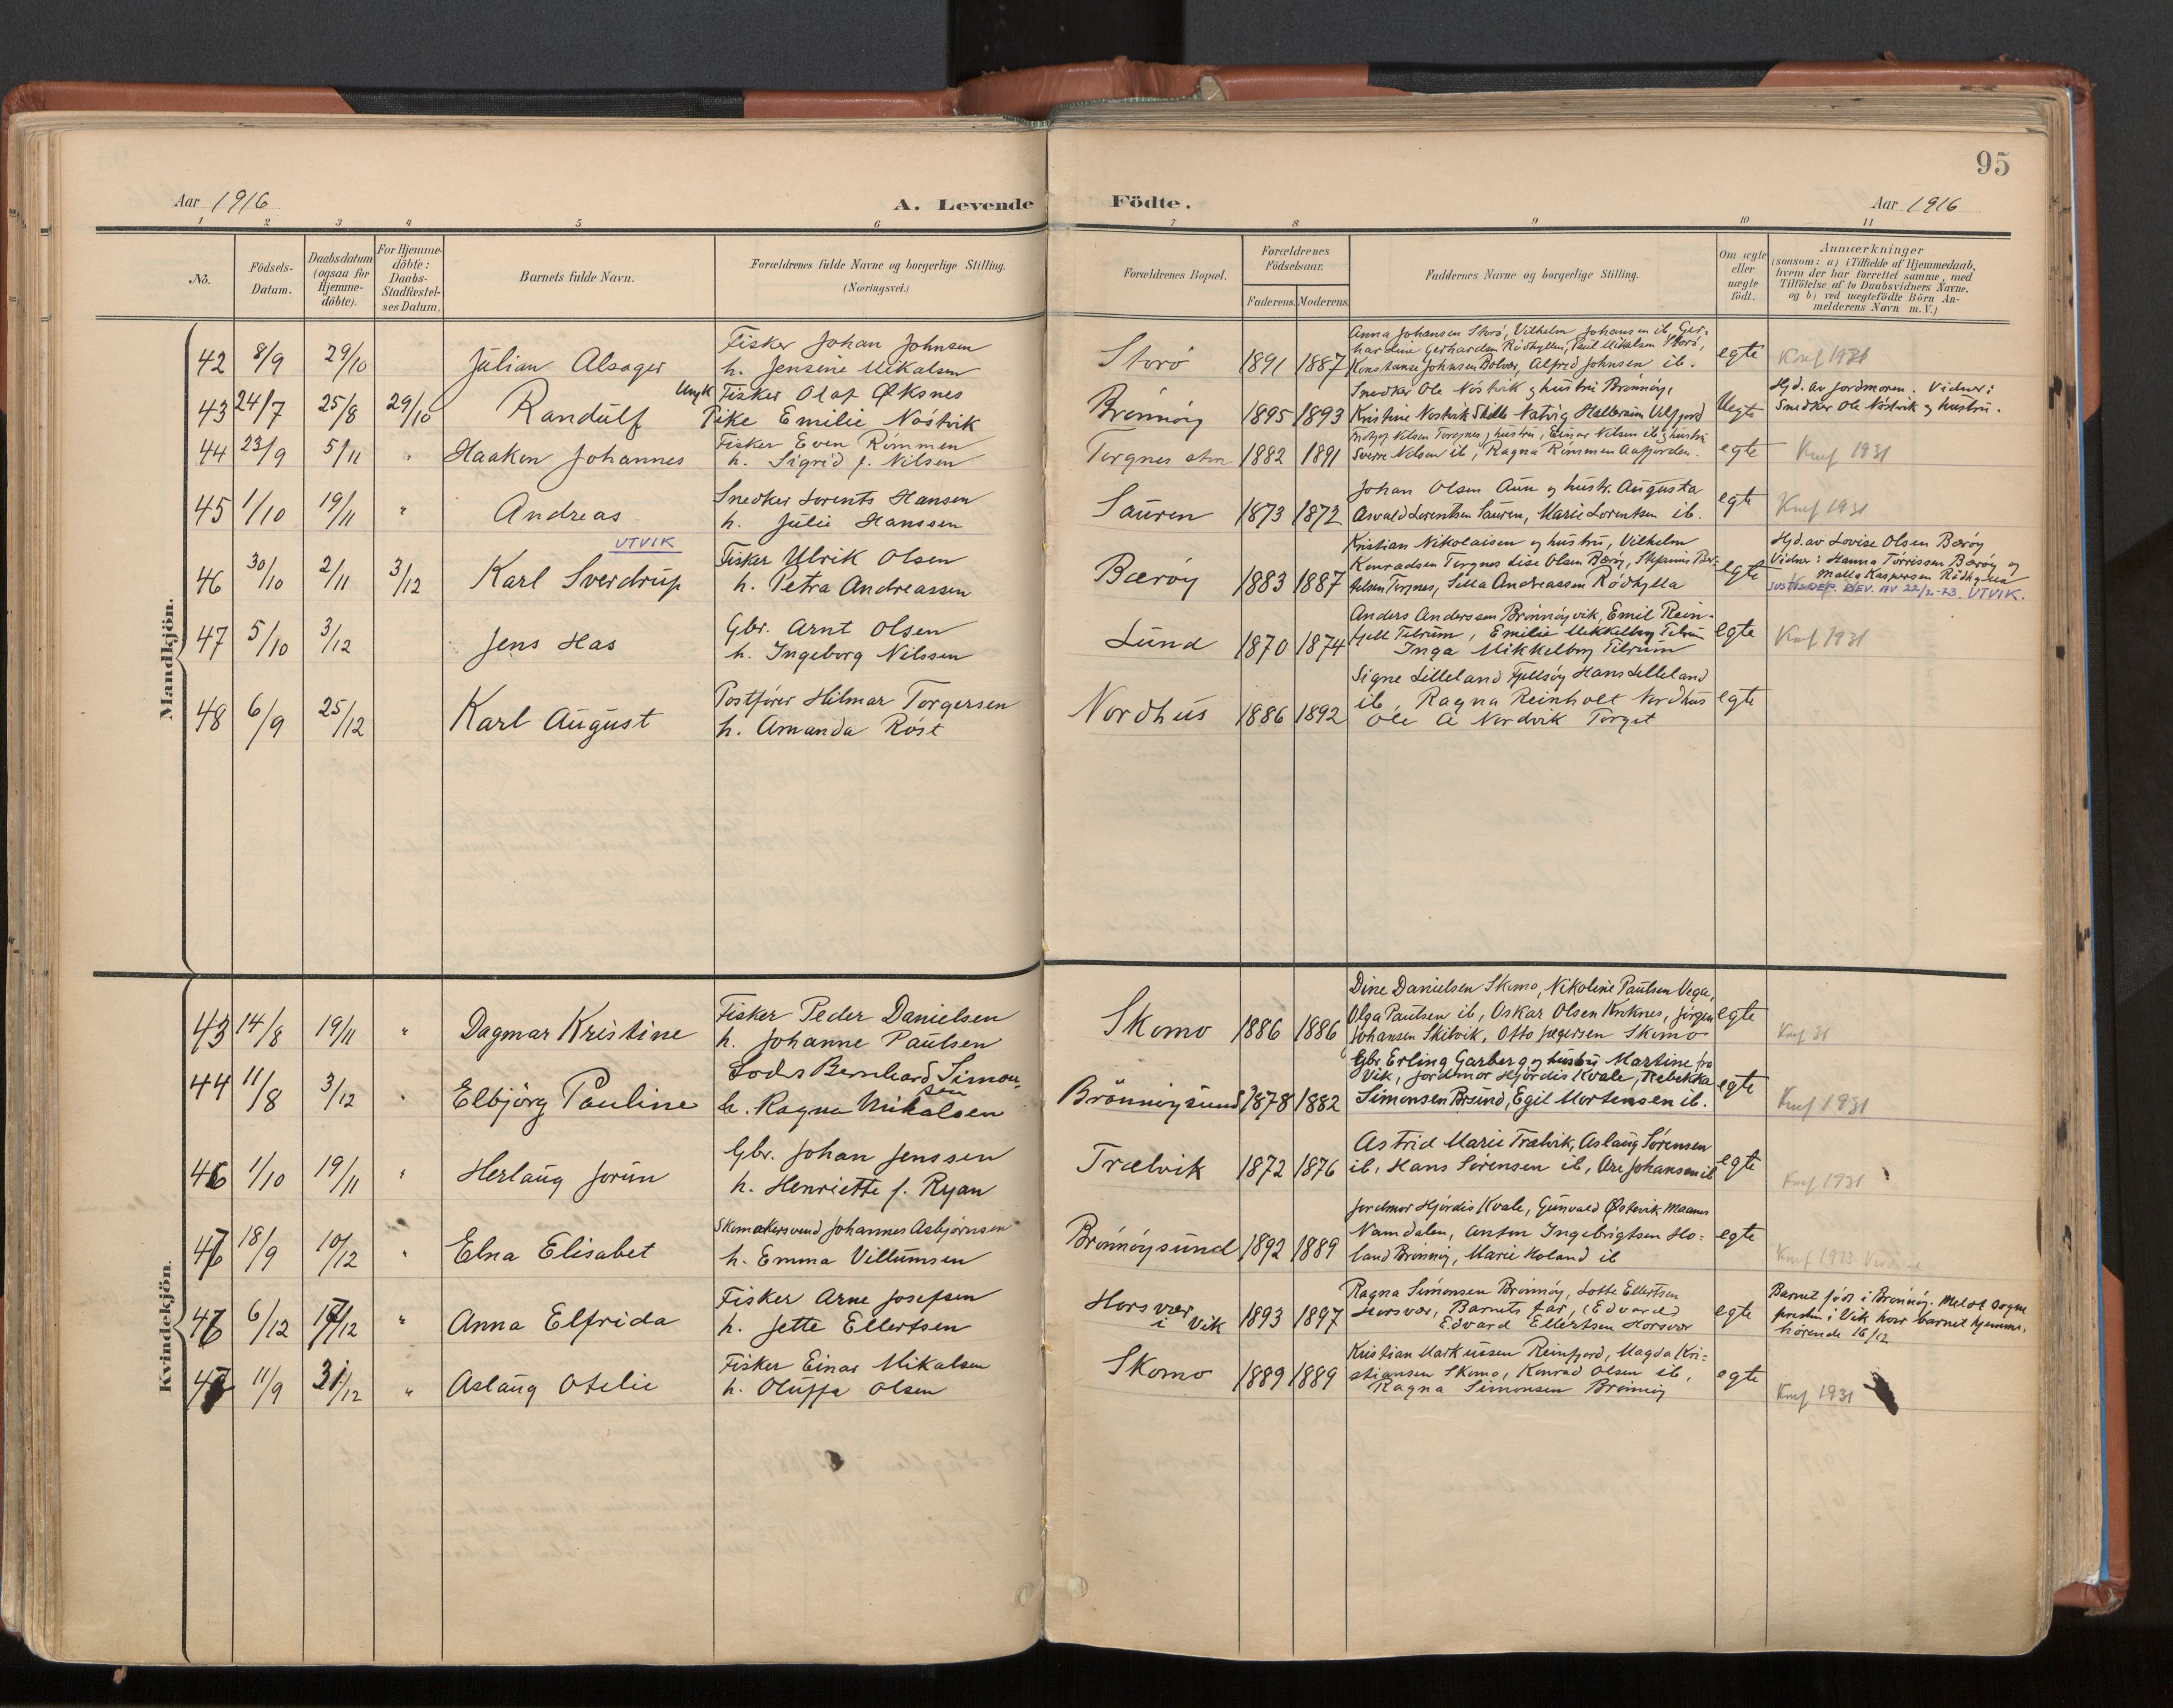 95
Aar 1916
A. Levende Födte.
Aar 1916
1 2 3 4 5 6 7 8 9 10 11
No.
Födsels-
Datum.
Daabsdatum
(ogsaa for
Hjemme-
döbte).
For Hjemme-
döbte:
Daabs-
Stadfæstel-
ses Datum.
Barnets fulde Navn.
Forældrenes fulde Navne og borgerlige Stilling.
(Næringsvei.)
Forældrenes Bopæl.
Forældrenes
Födselsaar.
Faderens. Moderens.
Faddernes Navne og borgerlige Stilling.
Om ægte
eller
uægte
födt.
Anmærkninger
(saasom: a) i Tilfælde af Hjemmedaab,
hvem der har forrettet samme, med
Tilföielse af to Daabsvidners Navne.
og b) ved uægtefödte Börn An-
melderens Navn m. V.)
Mandkjön.
42 8/9 29/10 Julian Alsager
Fisker Johan Johnsen
h. Jensine Mikalsen
Storö 1891 1887
Anna Johansen Storö, Vilhelm Johansen ib, Ger-
hardine Gerhardsen Rödhyllen, Paul Mikalsen Storö,
Konstanse Johnsen Bolvær, Alfred Johnsen ib.
egte Konf 1931
43 24/7 25/8 29/10 Randulf
Ungk Fisker Olaf Øksnes
Pike Emilie Nöstvik
Brönnöy 1895 1893
Snedker Ole Nöstvik og hustru Brönnöy,
Kristine Nostvik Skille Natvig Halbraim Velfjord
Uegte
Hjd. av Jordmoren. Vidner:
Snedker Ole Nöstvik og hustru.
44 23/9 5/11 " Haakon Johannes
Fisker Even Rimmen
h. Sigrid f. Nilsen
Torgnes 1882 1891
Nilsen Torgnes og hustru, Einar Nilsen ib og hustru
Sverre Nilsen ib, Ragna Rimmen Aafjorden.
egte Konf 1931
45 1/10 19/11 " Andreas
Snedker Lorents Hansen
h. Julie Hanssen
Sauren 1873 1872
Johan Olsen Aun og hustr. Augusta
Asvald Lorentsen Sauren, Marie Lorentsen ib.
egte Konf 1931
UTVIK
46 30/10 2/11 3/12 Karl Sverdrup
Fisker Ulrik Olsen
h. Petra Andreassen
Bærøy 1883 1887
Kristian Nikolaisen og hustru, Vilhelm
Konradsen Torgnes Lise Olsen Bærøy, Stefanus Ber-
telsen Torgnes, Silla Andreassen Rödhylla
egte
Hjd. av Lovise Olsen Bærøy
Vidner: Hanna Torrissen Bærøy og
Malla Kaspersen Rödhylla
JUST. DEP. BEV. AV 22/2-23. UTVIK.
47 5/10 3/12 Jens Has
Gbr. Arnt Olsen
h. Ingeborg Nilssen
Lund 1870 1874
Anders Anderssen Brönnöyvik, Emil Rein-
fjell Tilrum, Emilie Mikkelborg Tilrum
Inga Mikkelborg Tilrum
egte Konf 1931
48 6/9 25/12 Karl August
Postförer Hilmar Torgersen
h. Amanda Röst
Nordhus 1886 1892
Signe Lilleland Fjeldsøy Hans Lilleland
ib, Ragna Reinholt Nordhus
Ole A Nordvik Torget
egte
Kvindekjön.
43 14/8 19/11 " Dagmar Kristine
Fisker Peder Danielsen
h. Johanne Paulsen
Skomo 1886 1886
Dine Danielsen Skomo, Nikoline Paulsen Vega,
Olga Paulsen ib, Oskar Olsen Kroknes, Jörgen
Johansen Skilvik, Otto Jægersen Skomo
egte Konf 31
44 11/8 3/12 " Elbjörg Pauline
Lods Bernhard Simon-
sen
h. Ragna Mikalsen
Brönnöysund 1878 1882
Gbr. Erling Garberg og hustru Martine fra
Vik, Jordmor Hjördis Kvale, Rebekka
Simonsen Brsund, Egil Mortensen ib.
egte Konf 1931
46 1/10 19/11 " Herlaug Jorun
Gbr. Johan Jenssen
h. Henriette f. Ryan
Trælvik 1872 1876
Astrid Marie Trælvik, Aslaug Sörensen
ib, Hans Sörensen ib, Are Johansen ib
egte Konf 1931
18/9 10/12 " Elna Elisabet
Skomakersvend Johannes Asbjørnsen
h. Emma Villumsen
Brönnöysund 1892 1889
Jordmor Hjördis Kvale, Gunvald Østervik Maanes
Namdalen, Anton Ingebrigtsen Ho-
land Brönnöy, Marie Holand ib
egte
6/12 17/12 " Anna Elfrida
Fisker Arne Josefsen
h. Jette Ellertsen
Horsvær
i Vik 1893 1897
Ragna Simonsen Brönnöy, Lotte Ellertsen
Horsvær, Barnets far, (Edvard)
Edvard Ellertsen Horsvær
egte
Barnet föd i Brönnöy. Meldt sogne
presten i Vik hvor barnet hjemme-
hörende 16/12
11/9 31/12 " Aslaug Otelie
Fisker Einar Mikalsen
h. Oluffa Olsen
Skomo 1889 1889
Kristian Markussen Reinfjord, Magda Kri-
stiansen Skomo, Konrad Olsen ib,
Ragna Simonsen Brönnöy
egte Konf 1931